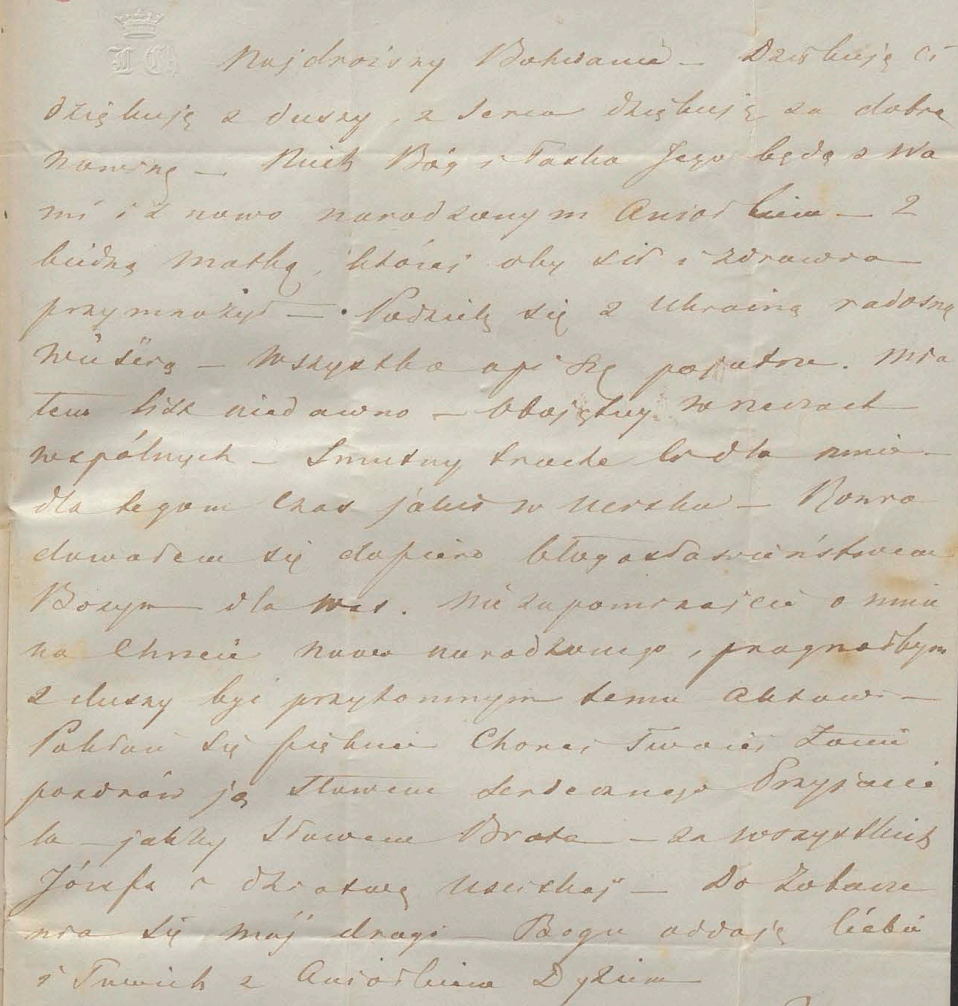 Najdroższy Bohdanie – Dziękuję Ci
dziękuję z duszy, z serca dziękuję za dobrą
nowinę – Niech Bóg i Łaska Jego będą z Wa
mi i z nowo narodzonym Aniołkiem – z
biédną matką, któréj oby sił i zdrowia
przymnożył – Podzielę się z Ukrainą radosną
– wszystko opiszę pojutrze. Mia
łem list niedawno – obojętny w rzeczach
wspólnych – Smutny trochę to dla mnie –
dla tegom czas jakiś w ucisku – Rozra
dowałem się dopiero błogosławieństwem
Bożym dla was. Nie zapominajcie o mnie
na Chrzcie nowo narodzonego, pragnąłbym
z duszy być przytomnym temu aktowi –
Pokłoń się pięknie Choréj Twojéj Żonie
pozdrów ją słowem serdecznego Przyjacie
la – jakby słowem Brata – za wszystkich
Józefa i dziatwę uściskaj – Do Zobacze
nia się mój drogi – Bogu oddaję Ciébie
i Twoich z Aniołkiem